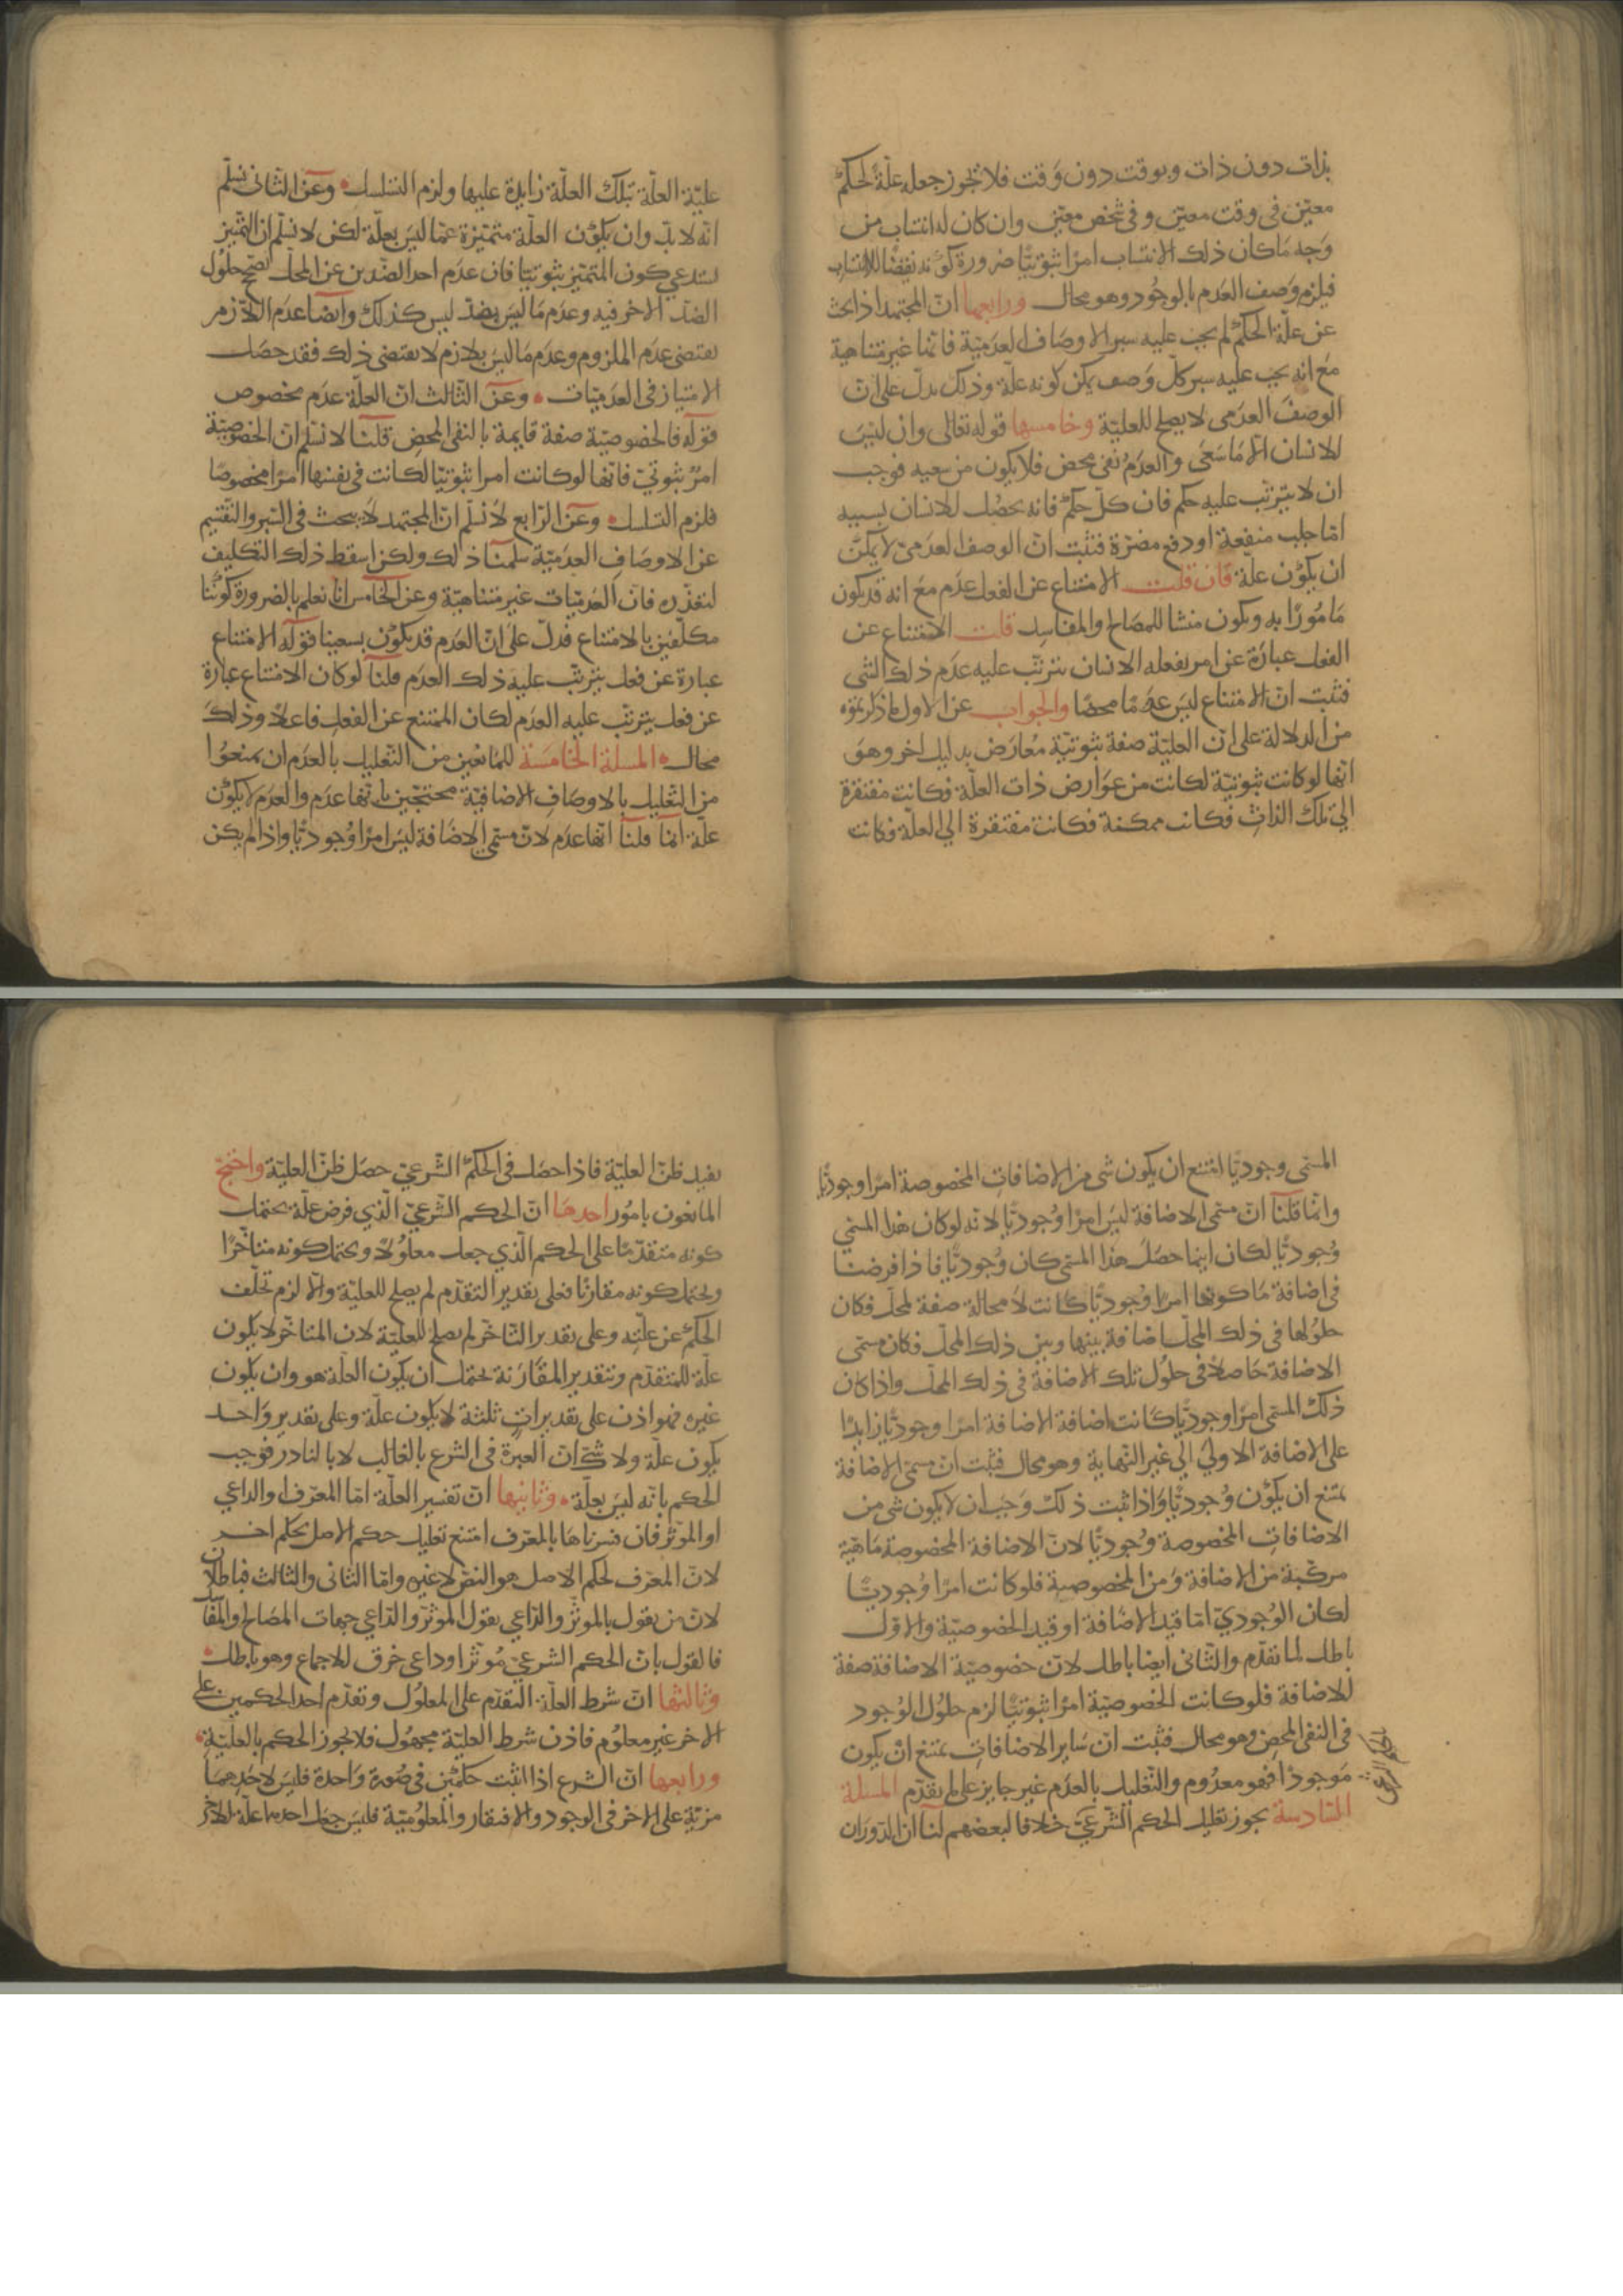 بذات دون ذات وبوقت دون وقت فلا يجوز جعله علة لحكم
معين في وقت معين وفي شخص معين وان كان له انتساب من
وجه ما كان ذلك الانتساب امرا ثبوتيا ضرورة كونه نقضا للاانتساب
فيلزم وصف العدم بالوجود وهو محال ورابعها ان المجتهد اذا بحث
عن علة الحكم لم يجب عليه سبر الاوصاف العدمية فانها غير متناهية
مع انه يجب عليه سبر كل وصف يمكن كونه علة وذلك يدل على ان
الوصف العدمي لا يصلح للعلية وخامسها قوله تعالى وان ليس
للانسان الا ما سعى والعدم نفي محض فلا يكون من سعيه فوجب
ان لا يترتب عليه حكم فان كل حكم فانه يحصل للانسان بسببه
اما جلب منفعة او دفع مضرة فثبت ان الوصف العدمي لا يمكن
ان يكون علة فان قلت الامتناع عن الفعل عدم مع انه قد يكون
مامورا به ويكون منشا للمصالح والمفاسد قلت الامتناع عن
الفعل عبارة عن امر يفعله الانسان يترتب عليه عدم ذلك الشي
فثبت ان الامتناع ليس عدما محضا والجواب عن الاول ما ذكرتموه
من الدلالة على ان العلية صفة ثبوتية معارض بدليل اخر وهو
انها لو كانت ثبوتية لكانت من عوارض ذات العلة فكانت مفتقرة
الى تلك الذات فكانت ممكنة فكانت مفتقرة الى العلة فكانت
علية العلة بتلك العلة زايدة عليها ولزم التسلسل وعن الثاني نسلم
انه لا بد وان يكون العلة متميزة عما ليس بعلة لكن لا نسلم ان التميز
يستدعي كون المتميز ثبوتيا فان عدم احد الضدين عن المحل يصح حلول
الضد الاخر فيه وعدم ما ليس بضد ليس كذلك وايضا عدم اللازم
يقتضي عدم الملزوم وعدم ما ليس بلازم لا يقتضي ذلك فقد حصل
الامتياز في العدميات وعن الثالث ان العلة عدم مخصوص
قوله فالخصوصية صفة قايمة بالنفي المحض قلنا لا نسلم ان الخصوصية
امر ثبوتي فانها لو كانت امرا ثبوتيا لكانت في نفسها امرا مخصوصا
فلزم التسلسل وعن الرابع لا نسلم ان المجتهد لا يبحث في السبر والتقسيم
عن الاوصاف العدمية سلمنا ذلك ولكن اسقط ذلك التكليف
لتعذره فان العدميات غير متناهية وعن الخامس انا نعلم بالضرورة كوننا
مكلفين بالامتناع فدل على ان العدم قد يكون بسعينا قوله الامتناع
عبارة عن فعل يترتب عليه ذلك العدم قلنا لو كان الامتناع عبارة
عن فعل يترتب عليه العدم لكان الممتنع عن الفعل فاعلا وذلك
محال المسلة الخامسة للمانعين من التعليل بالعدم ان يمنعوا
من التعليل بالاوصاف الاضافية محتجين بانها عدم والعدم لا يكون
علة انما قلنا انها عدم لان مسمى الاضافة ليس امرا وجوديا واذا لم يكن
المسمى وجوديا امتنع ان يكون شي من الاضافات المخصوصة امرا وجوديا
وانما قلنا ان مسمى الاضافة ليس امرا وجوديا لانه لو كان هذا المسمى
وجوديا لكان اينما حصل هذا المسمى كان وجوديا فاذا فرضنا
في اضافة ما كونها امرا وجوديا كانت لا محالة صفة لمحل فكان
حلولها في ذلك المحل اضافة بينها وبين ذلك المحل فكان مسمى
الاضافة حاصلا في حلول تلك الاضافة في ذلك المحل واذا كان
ذلك المسمى امرا وجوديا كانت اضافة الاضافة امرا وجوديا زايدا
على الاضافة الاولى الى غير النهاية وهو محال فثبت ان مسمى الاضافة
يمتنع ان يكون وجوديا واذا ثبت ذلك وجب ان لا يكون شي من
الاضافات المخصوصة وجوديا لان الاضافة المخصوصة ماهية
مركبة من الاضافة ومن المخصوصية فلو كانت امرا وجوديا
لكان الوجودي اما قيد الاضافة او قيد الخصوصية والاول
باطل لما تقدم والثاني ايضا باطل لان خصوصية الاضافة صفة
للاضافة فلو كانت الخصوصية امرا ثبوتيا لزم حلول الوجود
في النفي المحض وهو محال فثبت ان ساير الاضافات يمتنع ان يكون
موجودا فهو معدوم والتعليل بالعدم غير جايز على ما تقدم المسلة
السادسة يجوز تعليل الحكم الشرعي خلافا لبعضهم لنا ان الدوران
يفيد ظن العلية فاذا حصل في الحكم الشرعي حصل ظن العلية واحتج
المانعون بامور احدها ان الحكم الشرعي الذي فرض علة يحتمل
كونه متقدما على الحكم الذي جعل معلولا ويحتمل كونه متاخرا
ويحتمل كونه مقارنا فعلى تقدير التقدم لم يصلح للعلية والا لزم تخلف
الحكم عن علته وعلى تقدير التاخر لم يصلح للعلية لان المتاخر لا يكون
علة للمتقدم وبتقدير المقارنة يحتمل ان يكون العلة هو وان يكون
غيره فهو اذن على تقديرات ثلثة لا يكون علة وعلى تقدير واحد
يكون علة ولا شك ان العبرة في الشرع بالغالب لا بالنادر فوجب
الحكم بانه ليس بعلة وثانيها ان تفسير العلة اما المعرف او الداعي
او الموثر فان فسرناها بالمعرف امتنع تعليل حكم الاصل بحكم اخر
لان المعرف لحكم الاصل هو النص لا غير واما الثاني والثالث فباطلان
لان من يقول بالموثر والداعي يقول الموثر والداعي جهات المصالح والمفاسد
فالقول بان الحكم الشرعي موثر او داعي خرق للاجماع وهو باطل
وثالثها ان شرط العلة التقدم على المعلول وتقدم احد الحكمين على
الاخر غير معلوم فاذن شرط العلية مجهول فلا يجوز الحكم بالعلية
ورابعها ان الشرع اذا اثبت حكمين في صورة واحدة فليس لاحدهما
مزية على الاخر في الوجود والافتقار والمعلومية فليس جعل احدهما علة للاخر